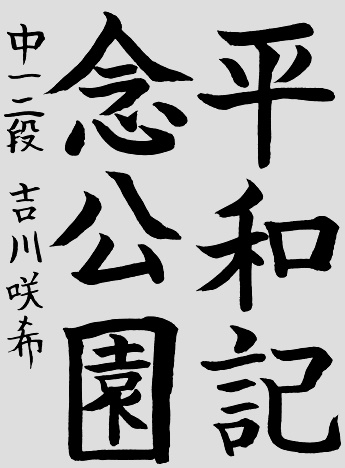 平和記
念公園
中一二段 吉川咲希